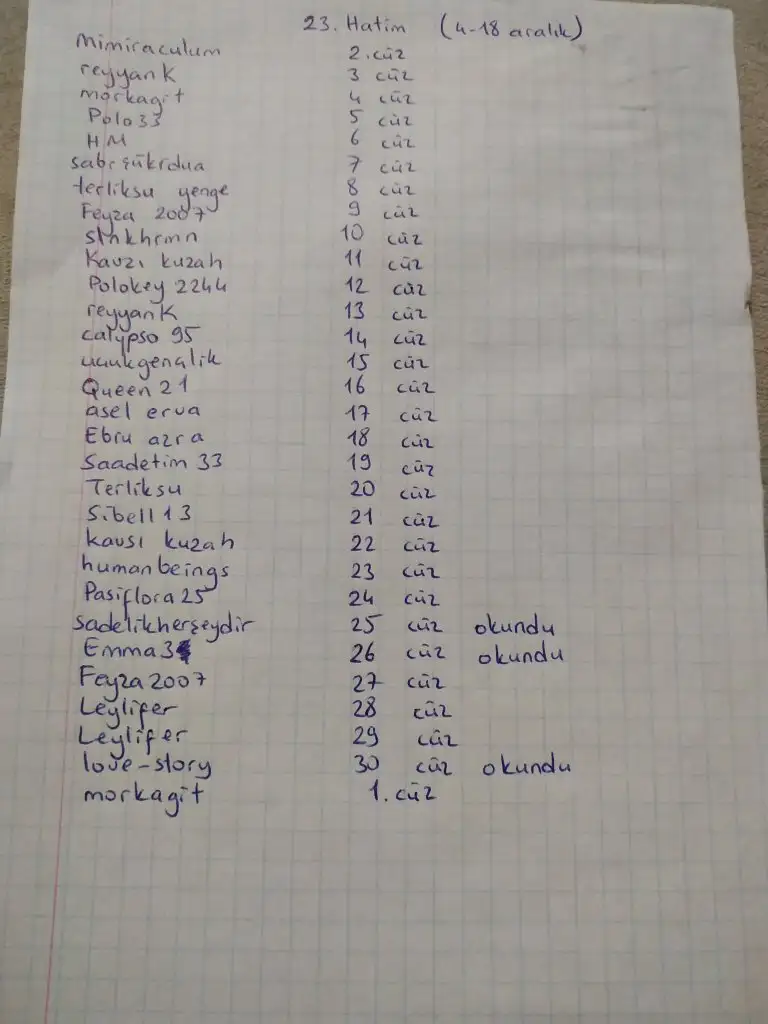 23. Hatim (4-18 aralık)
Mimiraculum 2. cüz
reyyanK 3 cüz
morkagıt 4 cüz
Polo33 5 cüz
HM 6 cüz
sabrşükrdua 7 cüz
terliksu yenge 8 cüz
Feyza 2007 9 cüz
stnkhrmn 10 cüz
Kavzı kuzah 11 cüz
Polokey 2244 12 cüz
reyyanK 13 cüz
calypso 95 14 cüz
15 cüz
Queen 21 16 cüz
asel erva 17 cüz
Ebru azra 18 cüz
Saadetim 33 19 cüz
Terliksu 20 cüz
Sibell 13 21 cüz
kavsı kuzah 22 cüz
humanbeings 23 cüz
Pasiflora 25 24 cüz
sadelikherşeydir 25 cüz okundu
Emma3 26 cüz okundu
Feyza2007 27 cüz
Leylifer 28 cüz
Leylifer 29 cüz
love-story 30 cüz okundu
morkagıt 1. cüz